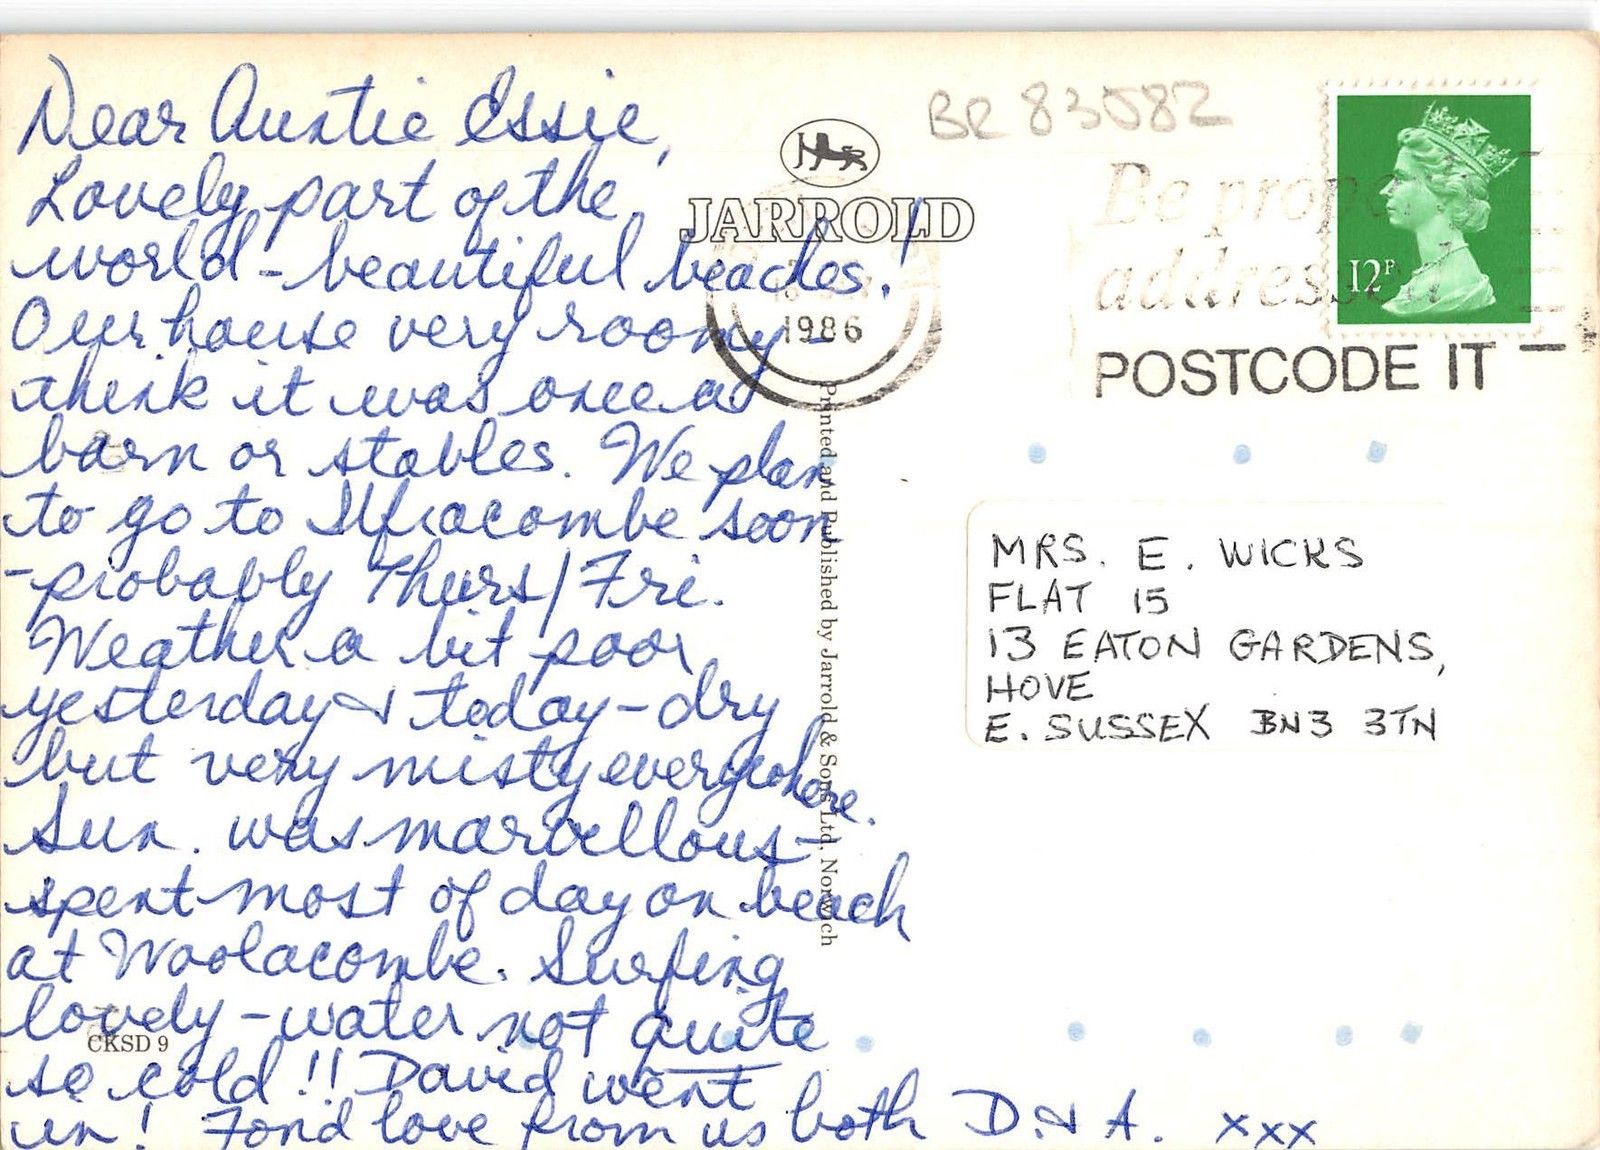 Dear Auntie Essie,
Lovely part of the
world - beautiful beaches!
Our house very roomy -
think it was once a
barn or stables. We plan
to go to Ilfracombe soon
- probably Thurs/Fri.
Weather a bit poor
yesterday & today - dry
but very misty everywhere.
Sun. was marvellous -
spent most of day on beach
at Woolacombe. Surfing
lovely - water not quite
so cold!! David went
in! Fond love from us both D. & A. xxx
CKSD 9
JARROLD
Printed and Published by Jarrold & Sons Ltd, Norwich
1986
BR 83582
Be properly
addressed
POSTCODE IT
12P
MRS. E. WICKS
FLAT 15
13 EATON GARDENS,
HOVE
E. SUSSEX BN3 3TN